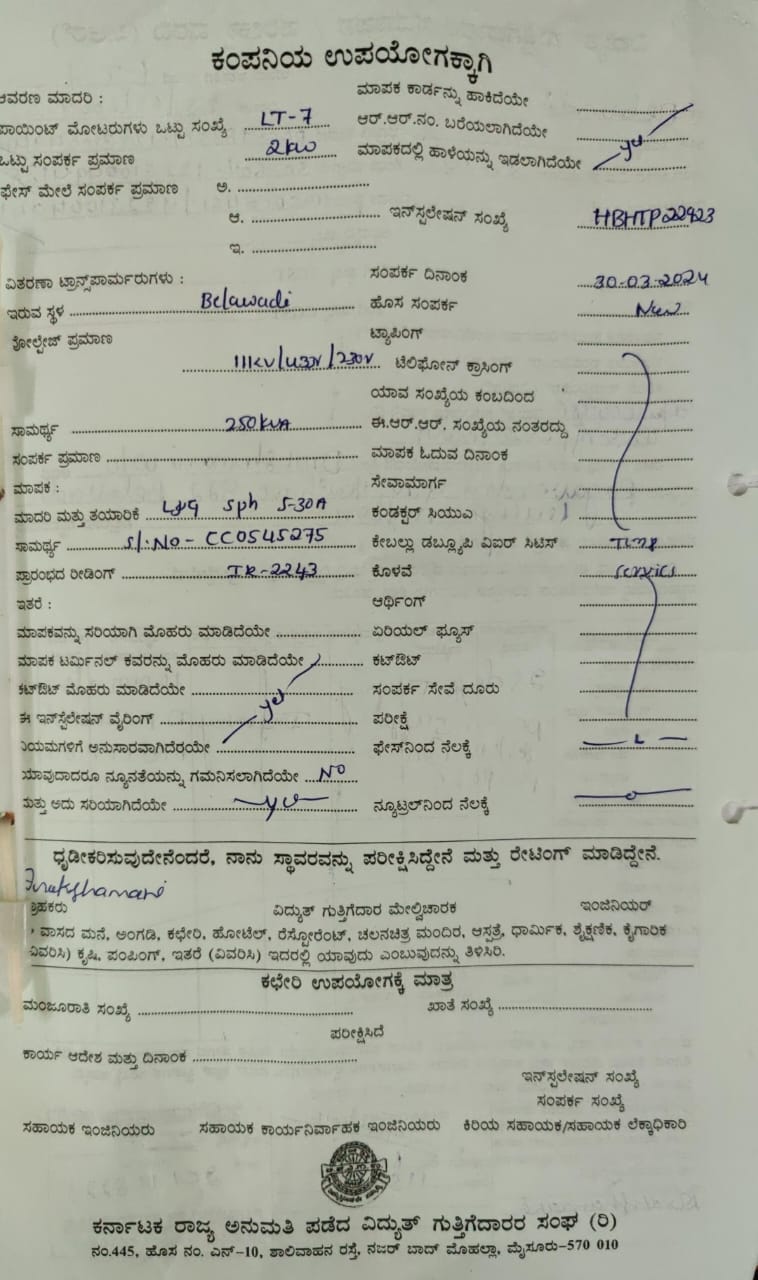 ಕಂಪನಿಯ ಉಪಯೋಗಕ್ಕಾಗಿ
ಆವರಣ ಮಾದರಿ :
ಮಾಪಕ ಕಾರ್ಡನ್ನು ಹಾಕಿದೆಯೇ
ಪಾಯಿಂಟ್ ಮೋಟರುಗಳು ಒಟ್ಟು ಸಂಖ್ಯೆ LT-7 ಆರ್.ಆರ್.ನಂ. ಬರೆಯಲಾಗಿದೆಯೇ
ಒಟ್ಟು ಸಂಪರ್ಕ ಪ್ರಮಾಣ 2kw ಮಾಪಕದಲ್ಲಿ ಹಾಳೆಯನ್ನು ಇಡಲಾಗಿದೆಯೇ yes
ಫೇಸ್ ಮೇಲೆ ಸಂಪರ್ಕ ಪ್ರಮಾಣ ಅ.
ಆ. ಇನ್‌ಸ್ಟಲೇಷನ್ ಸಂಖ್ಯೆ HBHTP22923
ಇ.
ವಿತರಣಾ ಟ್ರಾನ್ಸ್‌ಪಾರ್ಮರುಗಳು : ಸಂಪರ್ಕ ದಿನಾಂಕ 30-03-2024
ಇರುವ ಸ್ಥಳ Belawadi ಹೊಸ ಸಂಪರ್ಕ New
ವೋಲ್ಟೇಜ್ ಪ್ರಮಾಣ ಟ್ಯಾಪಿಂಗ್
11KV/433V/230V ಟೆಲಿಫೋನ್ ಕ್ರಾಸಿಂಗ್
ಯಾವ ಸಂಖ್ಯೆಯ ಕಂಬದಿಂದ
ಸಾಮರ್ಥ್ಯ 250kVA ಈ.ಆರ್.ಆರ್. ಸಂಖ್ಯೆಯ ನಂತರದ್ದು
ಸಂಪರ್ಕ ಪ್ರಮಾಣ ಮಾಪಕ ಓದುವ ದಿನಾಂಕ
ಮಾಪಕ : ಸೇವಾಮಾರ್ಗ
ಮಾದರಿ ಮತ್ತು ತಯಾರಿಕೆ L&G Sph 5-30A ಕಂಡಕ್ಟರ್ ಸಿಯುಎ
ಸಾಮರ್ಥ್ಯ Sl:No- CC0545275 ಕೇಬಲ್ಲು ಡಬ್ಲ್ಯೂಪಿ ವಿಐರ್ ಸಿಟಿಸ್ Temp
ಪ್ರಾರಂಭದ ರೀಡಿಂಗ್ IR-2243 ಕೊಳವೆ service
ಇತರೆ : ಆರ್ಥಿಂಗ್
ಮಾಪಕವನ್ನು ಸರಿಯಾಗಿ ಮೊಹರು ಮಾಡಿದೆಯೇ ಏರಿಯಲ್ ಫ್ಯೂಸ್
ಮಾಪಕ ಟರ್ಮಿನಲ್ ಕವರನ್ನು ಮೊಹರು ಮಾಡಿದೆಯೇ ಕಟ್‌ಔಟ್
ಕಟ್‌ಔಟ್ ಮೊಹರು ಮಾಡಿದೆಯೇ yes ಸಂಪರ್ಕ ಸೇವೆ ದೂರು
ಈ ಇನ್‌ಸ್ಟೆಲೇಷನ್ ವೈರಿಂಗ್ ಪರೀಕ್ಷೆ
ನಿಯಮಗಳಿಗೆ ಅನುಸಾರವಾಗಿದೆರಯೇ ಫೇಸ್‌ನಿಂದ ನೆಲಕ್ಕೆ
ಯಾವುದಾದರೂ ನ್ಯೂನತೆಯನ್ನು ಗಮನಿಸಲಾಗಿದೆಯೇ NO
ಮತ್ತು ಅದು ಸರಿಯಾಗಿದೆಯೇ yes ನ್ಯೂಟ್ರಲ್‌ನಿಂದ ನೆಲಕ್ಕೆ
ಧೃಡೀಕರಿಸುವುದೇನೆಂದರೆ, ನಾನು ಸ್ಥಾವರವನ್ನು ಪರೀಕ್ಷಿಸಿದ್ದೇನೆ ಮತ್ತು ರೇಟಿಂಗ್ ಮಾಡಿದ್ದೇನೆ.
ಗ್ರಾಹಕರು ವಿದ್ಯುತ್ ಗುತ್ತಿಗೆದಾರ ಮೇಲ್ವಿಚಾರಕ ಇಂಜಿನಿಯರ್
* ವಾಸದ ಮನೆ, ಅಂಗಡಿ, ಕಛೇರಿ, ಹೋಟೆಲ್, ರೆಸ್ಟೋರೆಂಟ್, ಚಲನಚಿತ್ರ ಮಂದಿರ, ಆಸ್ಪತ್ರೆ, ಧಾರ್ಮಿಕ, ಶೈಕ್ಷಣಿಕ, ಕೈಗಾರಿಕ
ವಿವರಿಸಿ) ಕೃಷಿ, ಪಂಪಿಂಗ್, ಇತರೆ (ವಿವರಿಸಿ) ಇದರಲ್ಲಿ ಯಾವುದು ಎಂಬುವುದನ್ನು ತಿಳಿಸಿರಿ.
ಕಛೇರಿ ಉಪಯೋಗಕ್ಕೆ ಮಾತ್ರ
ಮಂಜೂರಾತಿ ಸಂಖ್ಯೆ ಖಾತೆ ಸಂಖ್ಯೆ
ಪರೀಕ್ಷಿಸಿದೆ
ಕಾರ್ಯ ಆದೇಶ ಮತ್ತು ದಿನಾಂಕ
ಇನ್‌ಸ್ಟಲೇಷನ್ ಸಂಖ್ಯೆ
ಸಂಪರ್ಕ ಸಂಖ್ಯೆ
ಸಹಾಯಕ ಇಂಜಿನಿಯರು ಸಹಾಯಕ ಕಾರ್ಯನಿರ್ವಾಹಕ ಇಂಜಿನಿಯರು ಕಿರಿಯ ಸಹಾಯಕ/ಸಹಾಯಕ ಲೆಕ್ಕಾಧಿಕಾರಿ
ಕರ್ನಾಟಕ ರಾಜ್ಯ ಅನುಮತಿ ಪಡೆದ ವಿದ್ಯುತ್ ಗುತ್ತಿಗೆದಾರರ ಸಂಘ (ರಿ)
ನಂ.445, ಹೊಸ ನಂ. ಎನ್-10, ಶಾಲಿವಾಹನ ರಸ್ತೆ, ನಜರ್ ಬಾದ್ ಮೊಹಲ್ಲಾ, ಮೈಸೂರು-570 010